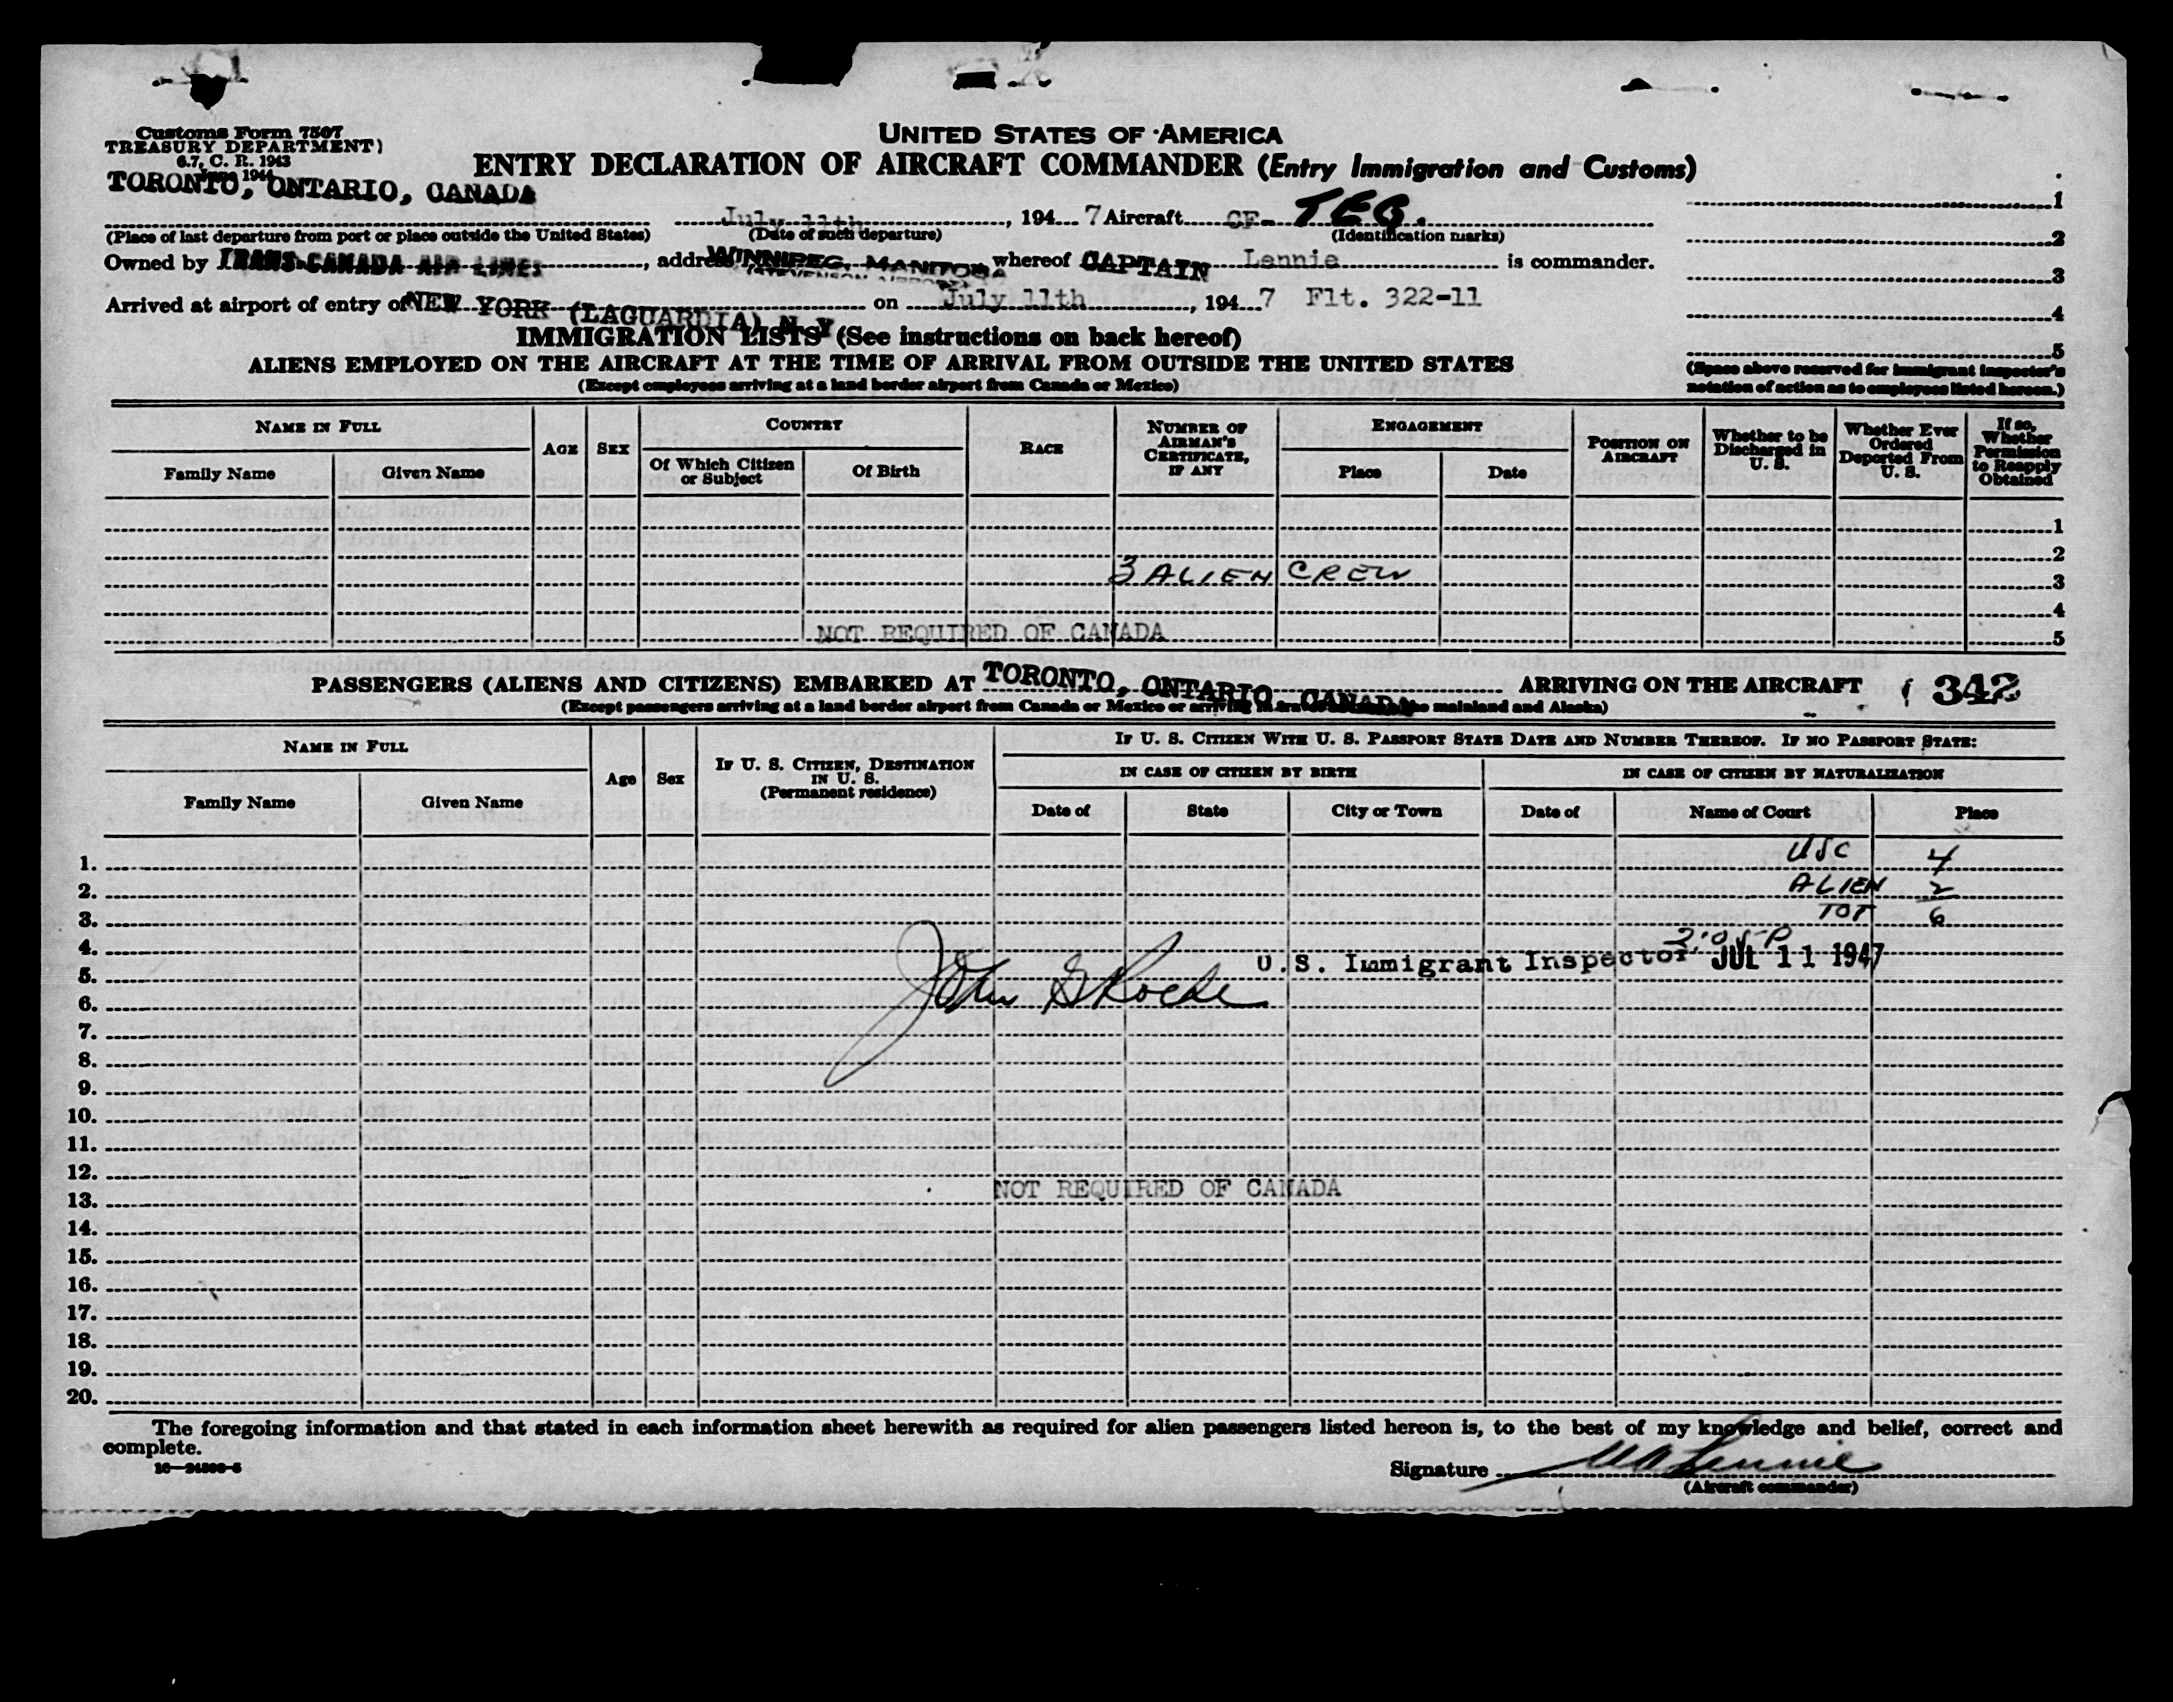 Customs Form 7507
TREASURY DEPARTMENT
6.7, C. R. 1943
June 1944
UNITED STATES OF AMERICA
ENTRY DECLARATION OF AIRCRAFT COMMANDER (Entry Immigration and Customs)
TORONTO, ONTARIO, CANADA July 11th, 1947 Aircraft CF- TEG.
(Place of last departure from port or place outside the United States) (Date of such departure) (Identification marks)
Owned by TRANS-CANADA AIR LINES, address WINNIPEG, MANITOBA whereof CAPTAIN Lennie is commander.
Arrived at airport of entry of NEW YORK (LAGUARDIA) N Y on July 11th, 1947 Flt. 322-11
1
2
3
4
5
(Space above reserved for immigrant inspector's notation of action as to employees listed hereon.)
IMMIGRATION LISTS (See instructions on back hereof)
ALIENS EMPLOYED ON THE AIRCRAFT AT THE TIME OF ARRIVAL FROM OUTSIDE THE UNITED STATES
(Except employees arriving at a land border airport from Canada or Mexico)
NAME IN FULL
Family Name Given Name
AGE SEX
COUNTRY
Of Which Citizen or Subject Of Birth
RACE
NUMBER OF AIRMAN'S CERTIFICATE, IF ANY
ENGAGEMENT
Place Date
POSITION ON AIRCRAFT
Whether to be Discharged in U. S.
Whether Ever Ordered Deported From U. S.
If so, Whether Permission to Reapply Obtained
1
2
3 ALIEN CREW 3
4
NOT REQUIRED OF CANADA 5
PASSENGERS (ALIENS AND CITIZENS) EMBARKED AT TORONTO, ONTARIO, CANADA ARRIVING ON THE AIRCRAFT 342
(Except passengers arriving at a land border airport from Canada or Mexico or arriving mainland and Alaska)
NAME IN FULL
Family Name Given Name
Age Sex
IF U. S. CITIZEN, DESTINATION IN U. S.
(Permanent residence)
IF U. S. CITIZEN WITH U. S. PASSPORT STATE DATE AND NUMBER THEREOF. IF NO PASSPORT STATE:
IN CASE OF CITIZEN BY BIRTH IN CASE OF CITIZEN BY NATURALIZATION
Date of State City or Town Date of Name of Court Place
1. USC 4
2. ALIEN 2
3. TOT 6
4.
5. U.S. Immigrant Inspector JUL 11 1947
6. John
7.
8.
9.
10.
11.
12.
13. NOT REQUIRED OF CANADA
14.
15.
16.
17.
18.
19.
20.
The foregoing information and that stated in each information sheet herewith as required for alien passengers listed hereon is, to the best of my knowledge and belief, correct and
complete.
Signature Lennie
(Aircraft commander)